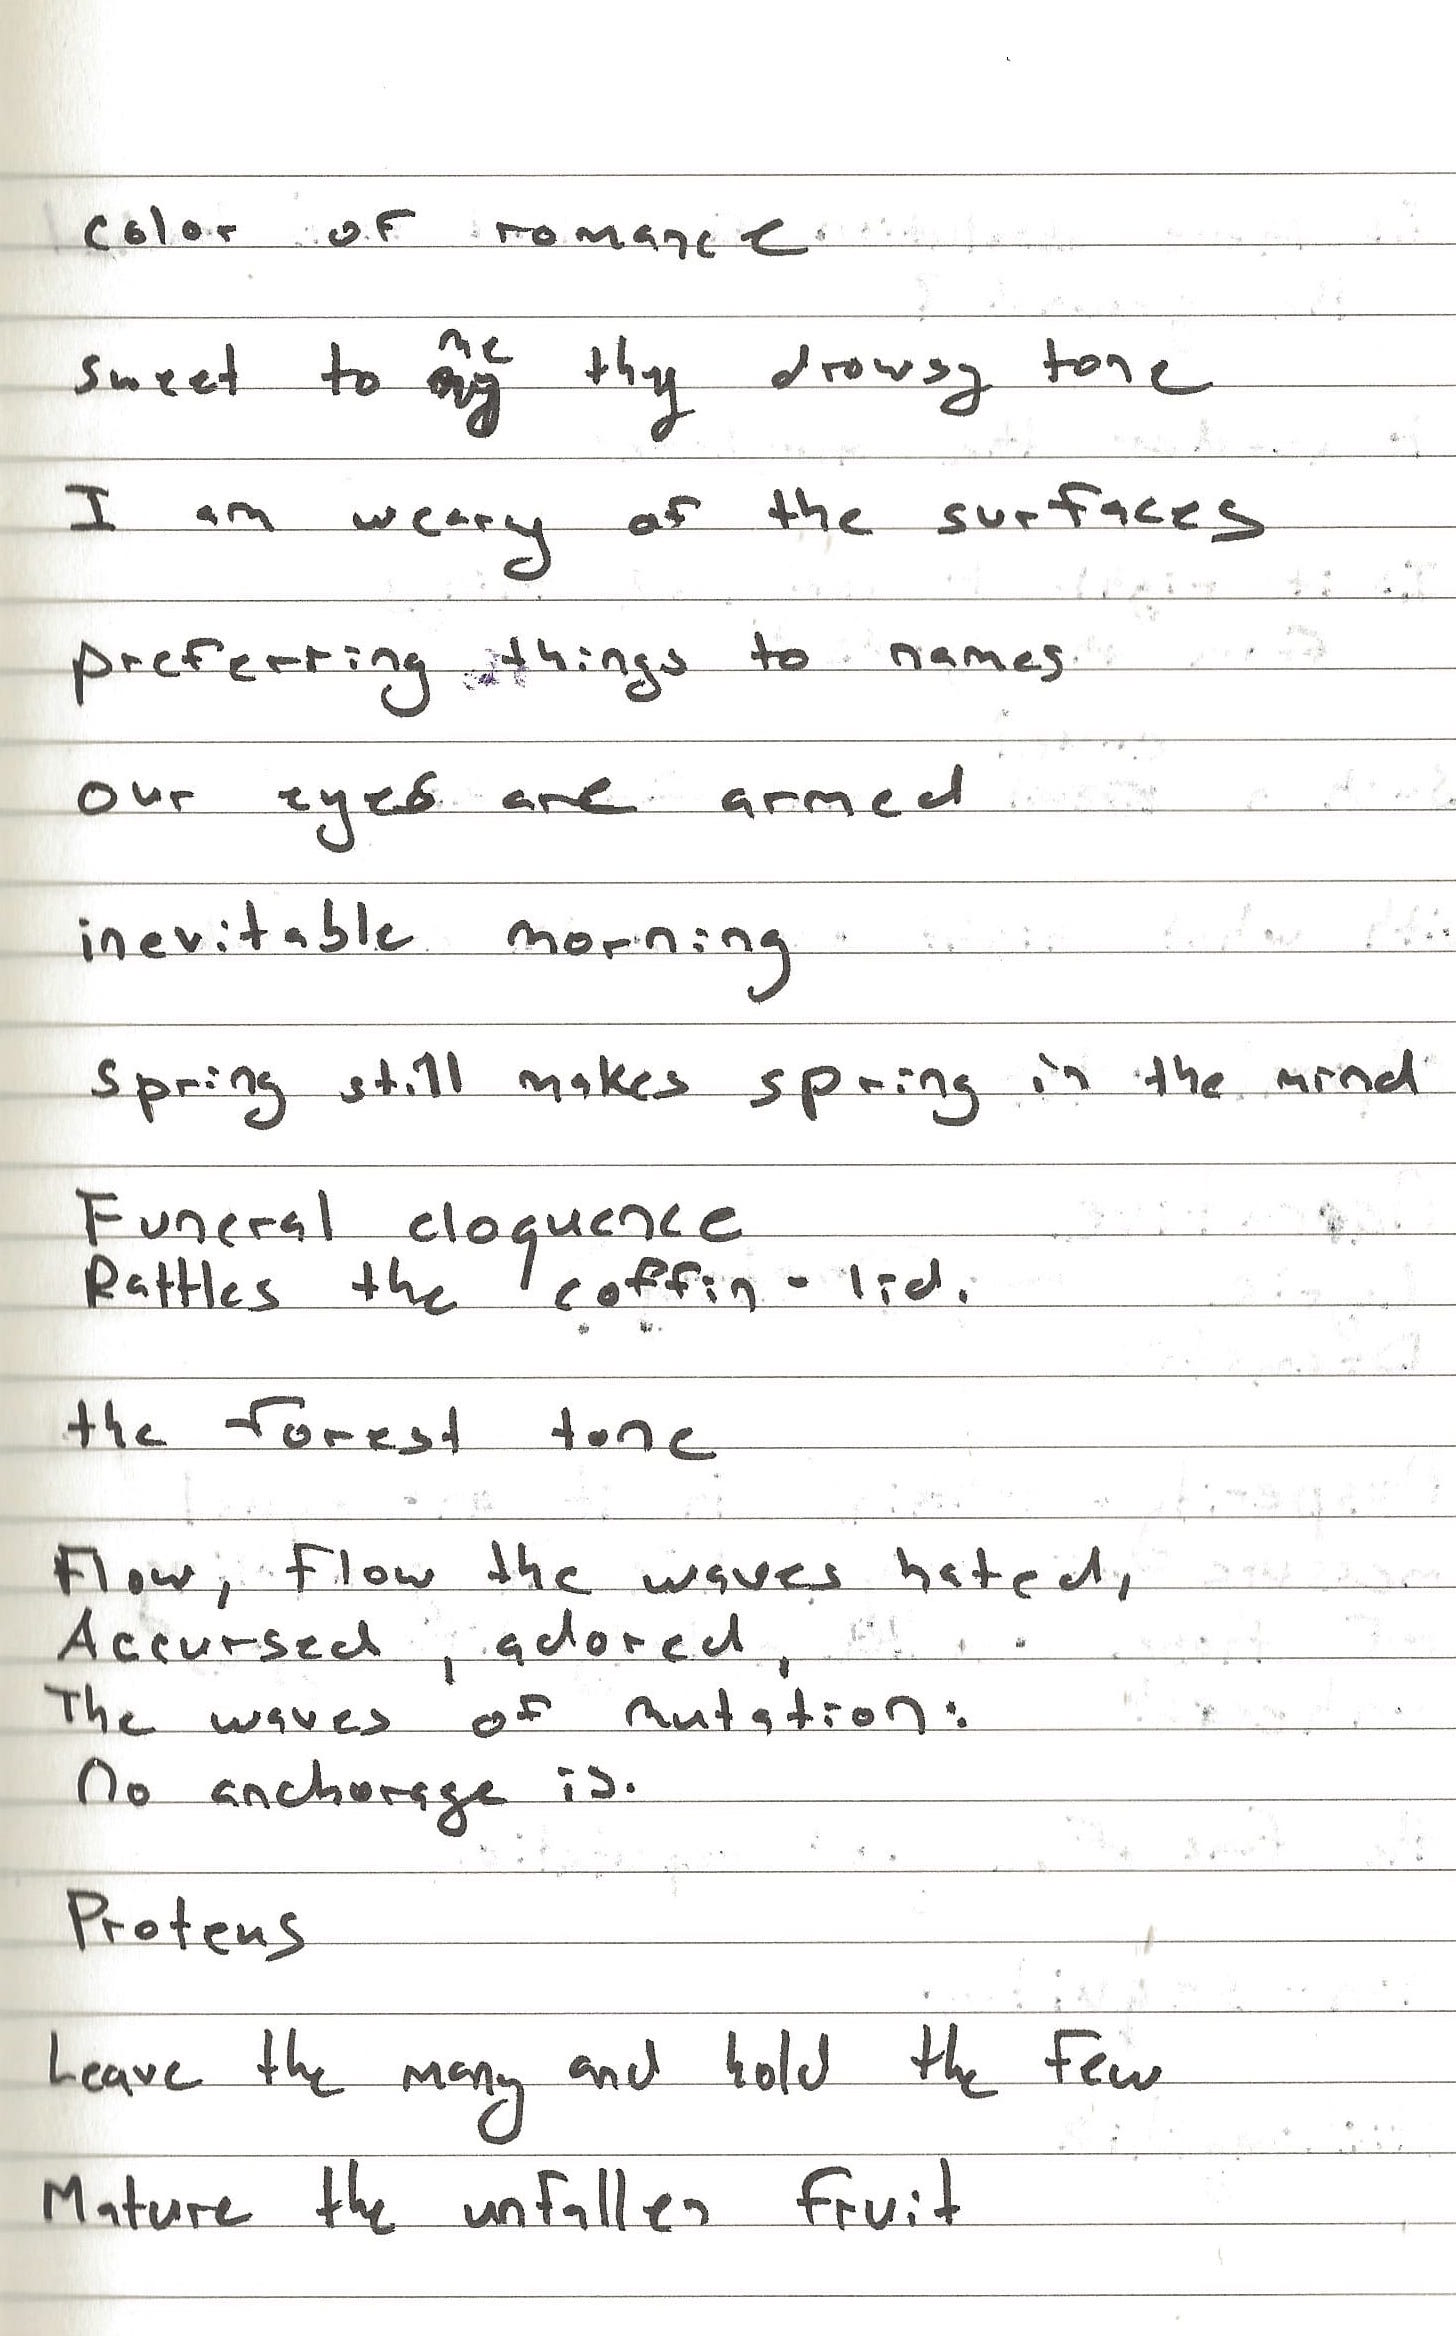 color of romance
sweet to me thy drowsy tone
I am weary of the surfaces
preferring things to names
our eyes are armed
inevitable morning
Spring still makes spring in the mind
Funeral eloquence
Rattles the coffin-lid.
the forest tone
Flow, flow the waves hated,
Accursed, adored,
The waves of mutation:
No anchorage is.
Proteus
Leave the many and hold the few
Mature the unfallen fruit